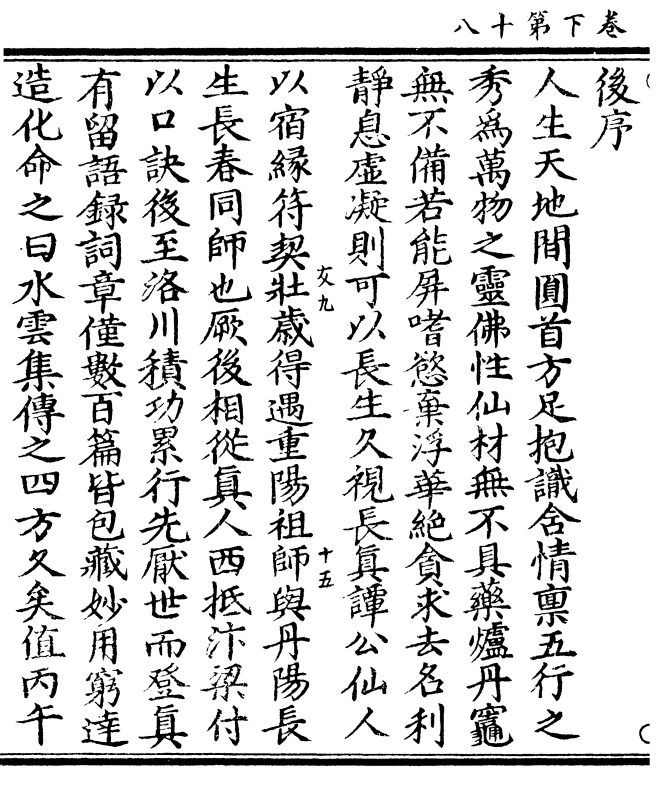 卷下第十八
後序
人生天地間圓首方足抱識含情禀五行之
秀爲萬物之靈佛性仙材無不具藥爐丹竈
無不備若能屏嗜慾棄浮華絶貪求去名利
靜息虚凝則可以長生久視長眞譚公仙人
以宿緣符契壯歳得遇重陽祖師與丹陽長
生長春同師也厥後相從眞人西抵汴梁付
以口訣後至洛川積功累行先厭世而登眞
有留語録詞章僅數百篇皆包藏妙用窮達
造化命之曰水雲集傳之四方久矣值丙午
友九
十五